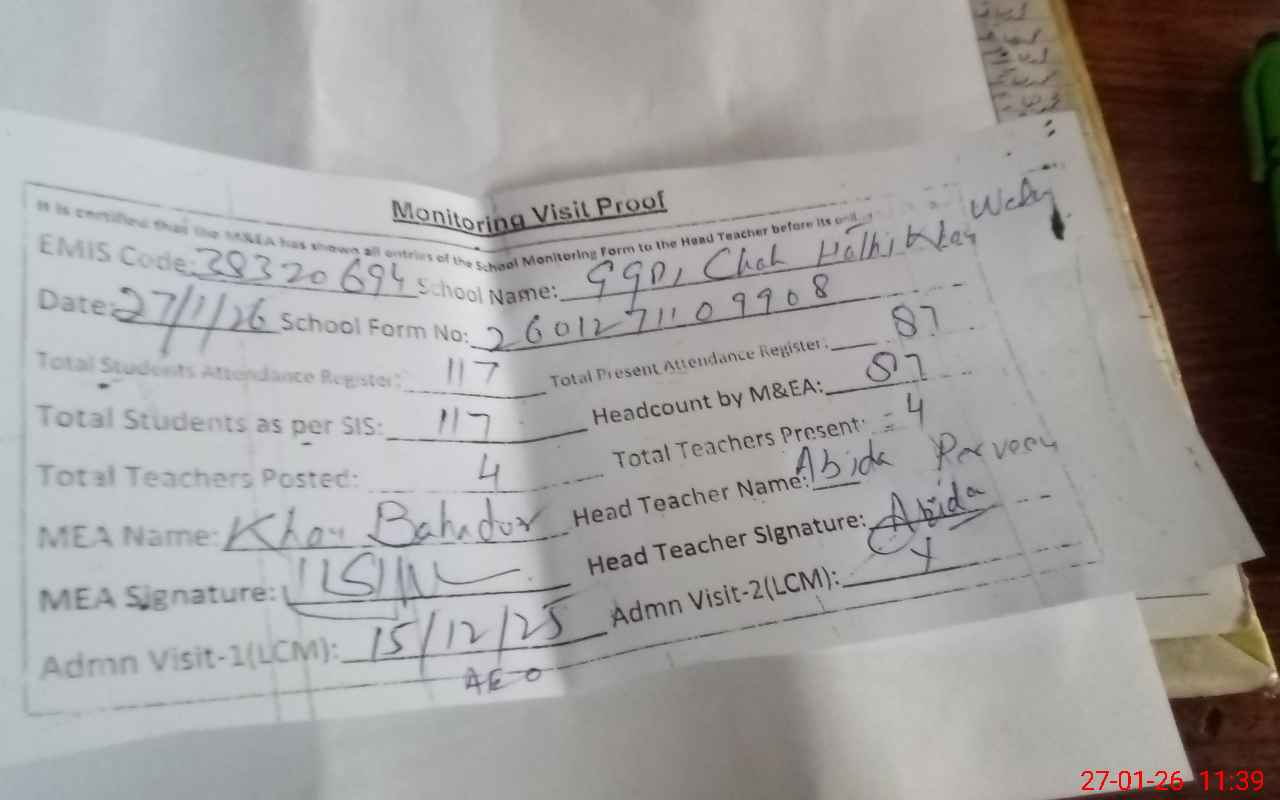 Monitoring Visit Proof
It is certified that the M&EA has shown all entries of the School Monitoring Form to the Head Teacher before its
EMIS Code: 38320694 School Name: GGPS, Chak Halhi Khan
Date: 27/1/26 School Form No: 2601271109908
Total Students Attendance Register: 117 Total Present Attendance Register: 87
Total Students as per SIS: 117 Headcount by M&EA: 87
Total Teachers Posted: 4 Total Teachers Present: = 4
MEA Name: Khan Bahador Head Teacher Name: Abida Parveen
MEA Signature: Head Teacher Signature: Abida
Admn Visit-1(LCM): 15/12/25 Admn Visit-2(LCM): X
AEO
27-01-26 11:39